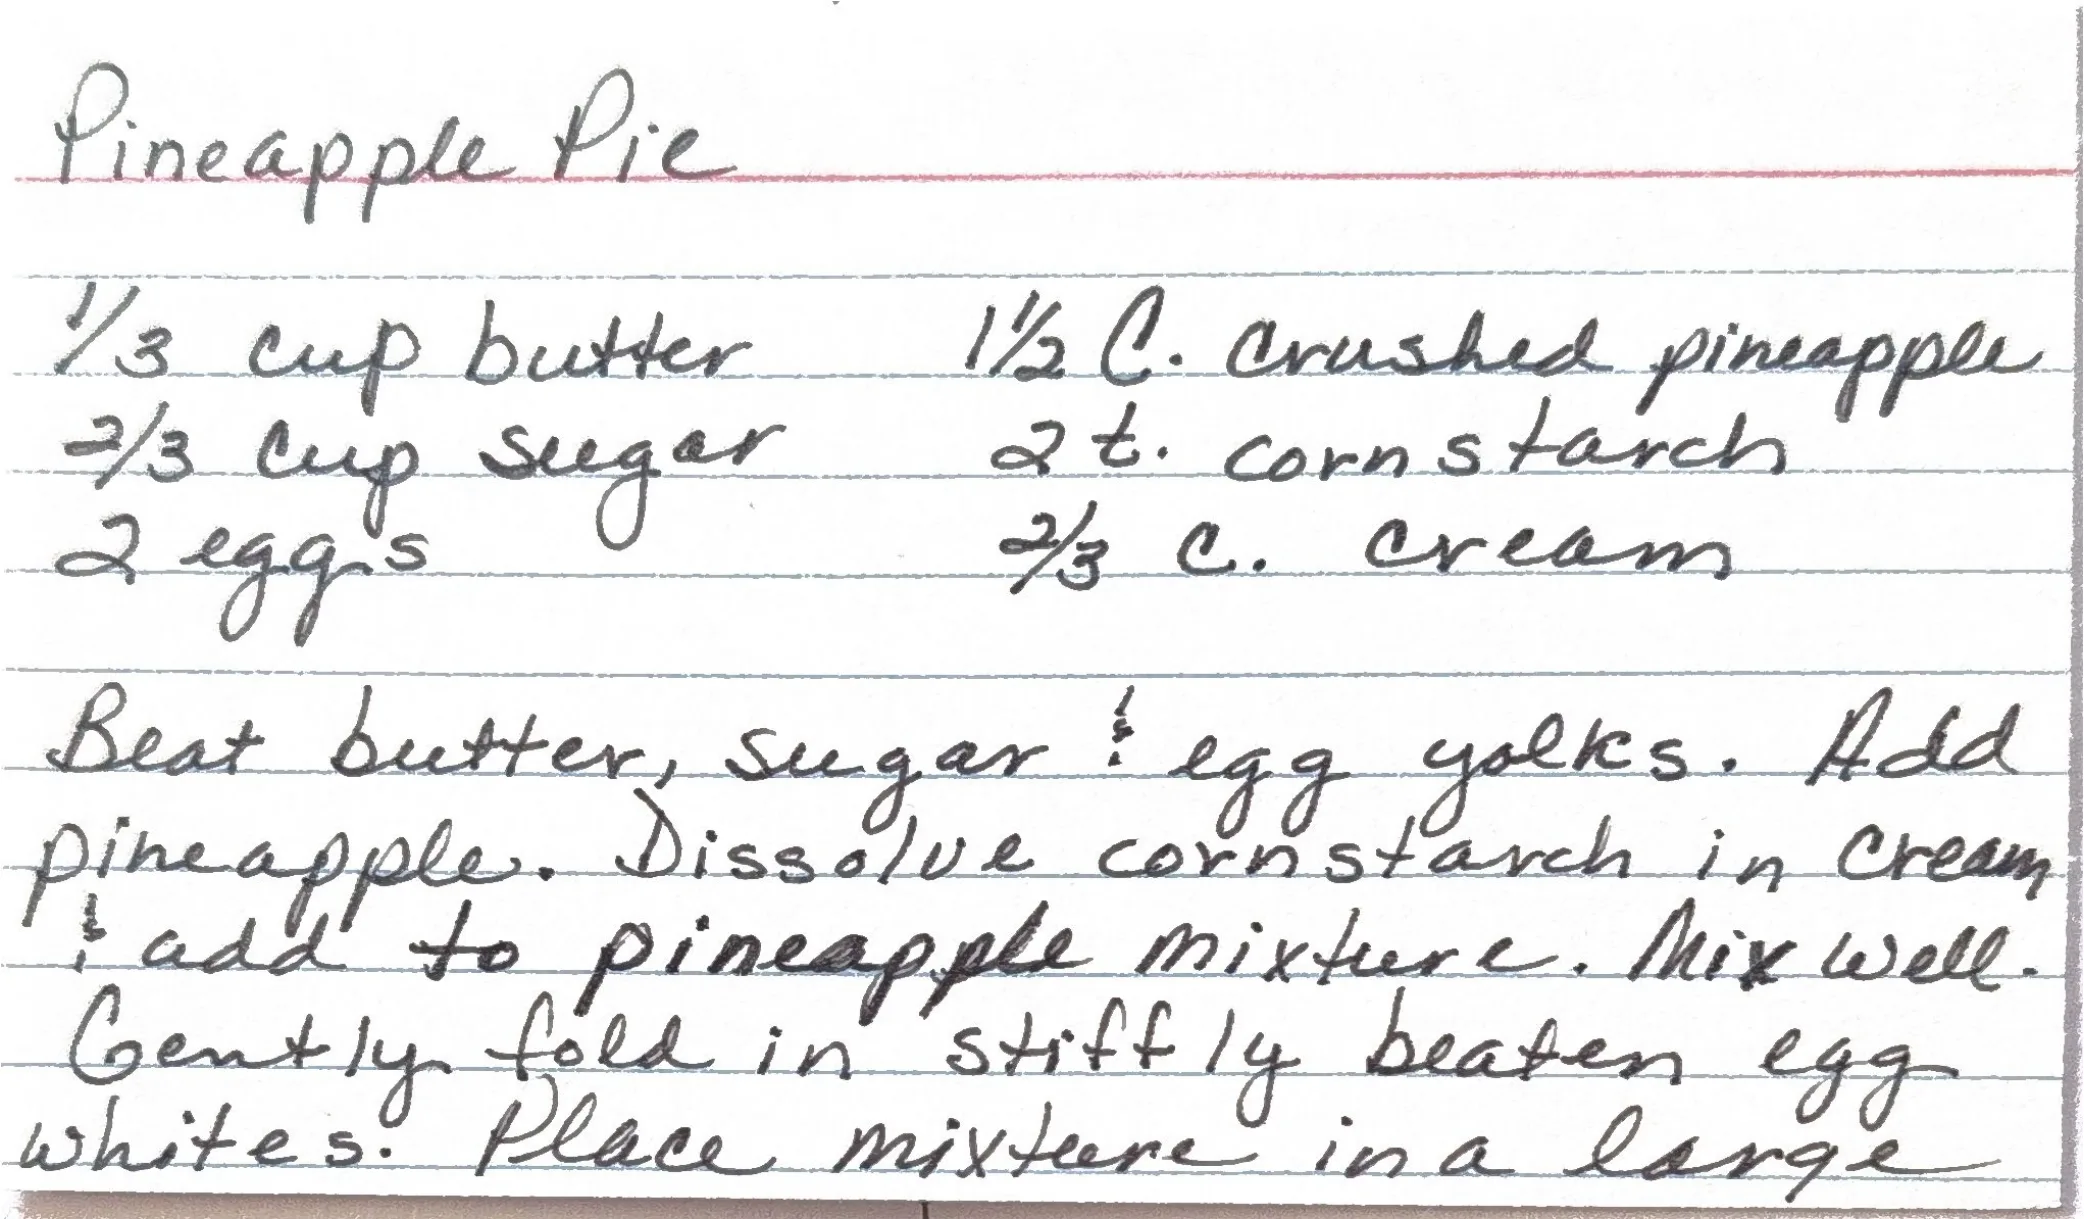 Pineapple Pie
1/3 cup butter 1 1/2 C. crushed pineapple
2/3 cup sugar 2 t. cornstarch
2 eggs 2/3 c. cream
Beat butter, sugar & egg yolks. Add
pineapple. Dissolve cornstarch in cream
& add to pineapple mixture. Mix well.
Gently fold in stiffly beaten egg
whites. Place mixture in a large